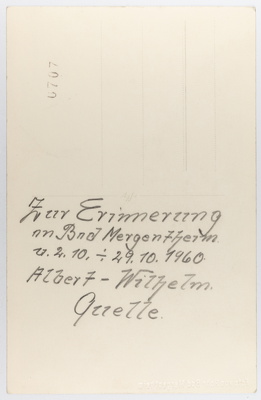 6707
Zur Erinnerung
an Bad Mergentheim
v. 2. 10. ÷ 29. 10. 1960.
Albert - Wilhelm.
Quelle.